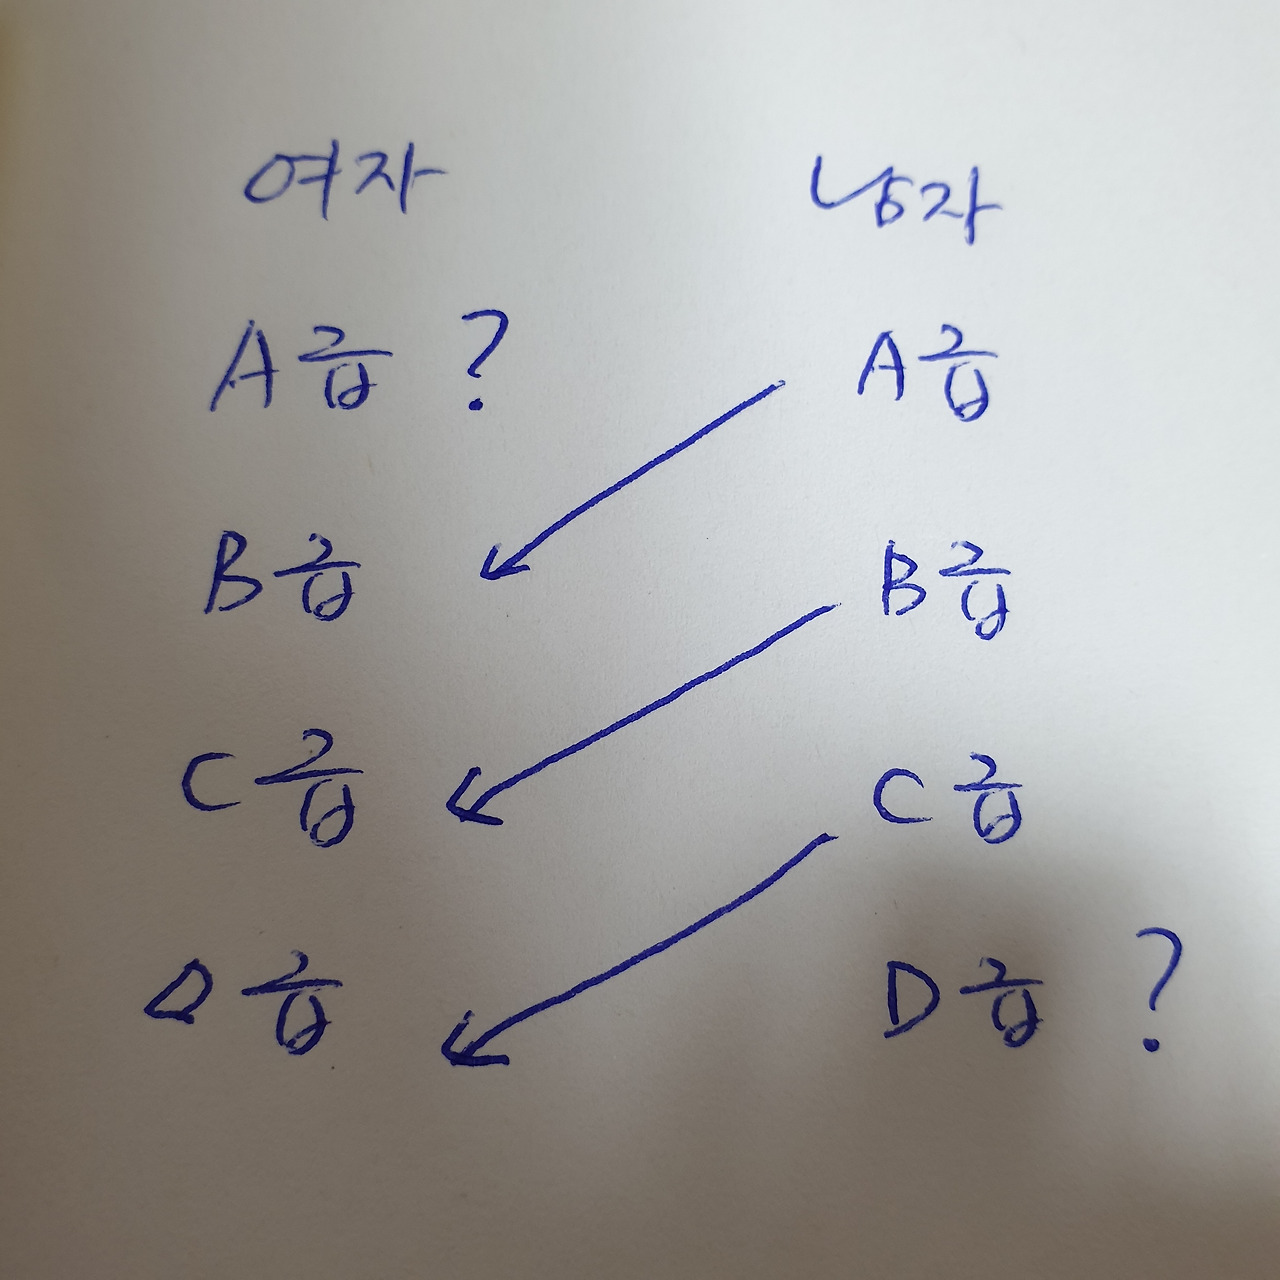 여자 남자
A급 ? A급
B급 B급
C급 C급
D급 D급 ?